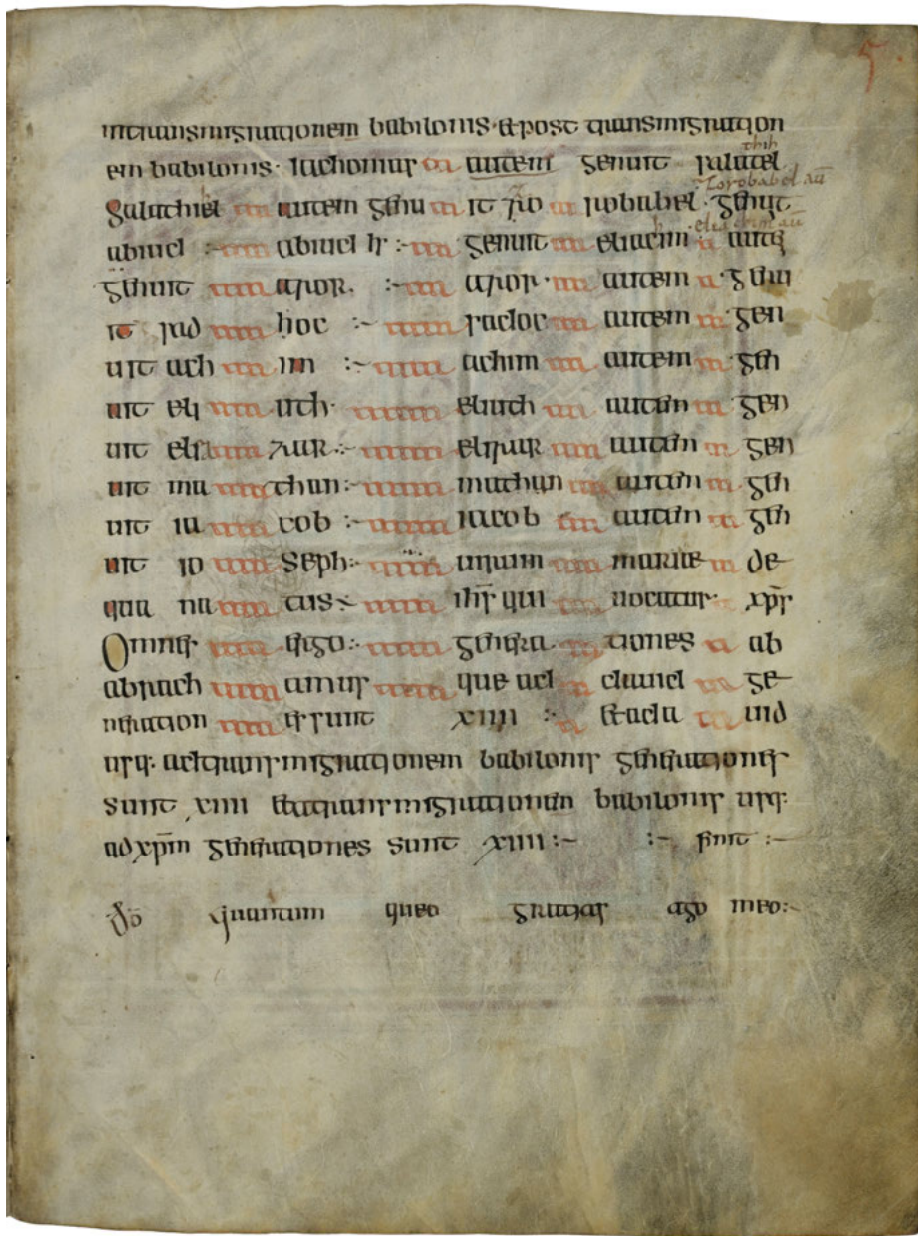 5.
intransmigrationem babilonis · & post transmigration
em babilonis · iachonias autem genuit salatiel
thih
Zorobabel aū
salathiel autem genu it zo robabel · genuit
eliachim aū
abiud :- abiud h :- genuit eliacim autē
genuit azor. :- azor · autem genu
it sad hoc :- sadoc autem gen
uit ach im :- achim autem gen
uit eli uth · eliuth autem gen
uit eli zar :- eliazar autem gen
uit ma than :- mathan autem gen
uit ia cob :- iacob autem gen
uit io seph :- uirum mariae de
qua na tus ihs qui uocatur · xps
Omnes ergo :- genera tiones ab
abrach amus que ad dauid ge
neration essunt xiiii :- & ada uid
usq · adtransmigrationem babilonis generationes
sunt xiiii & atransmigrationem babilonis usq ·
ad xpm generationes sunt xiiii :- :- finit :-
do quantum queo gratias ago meo :-